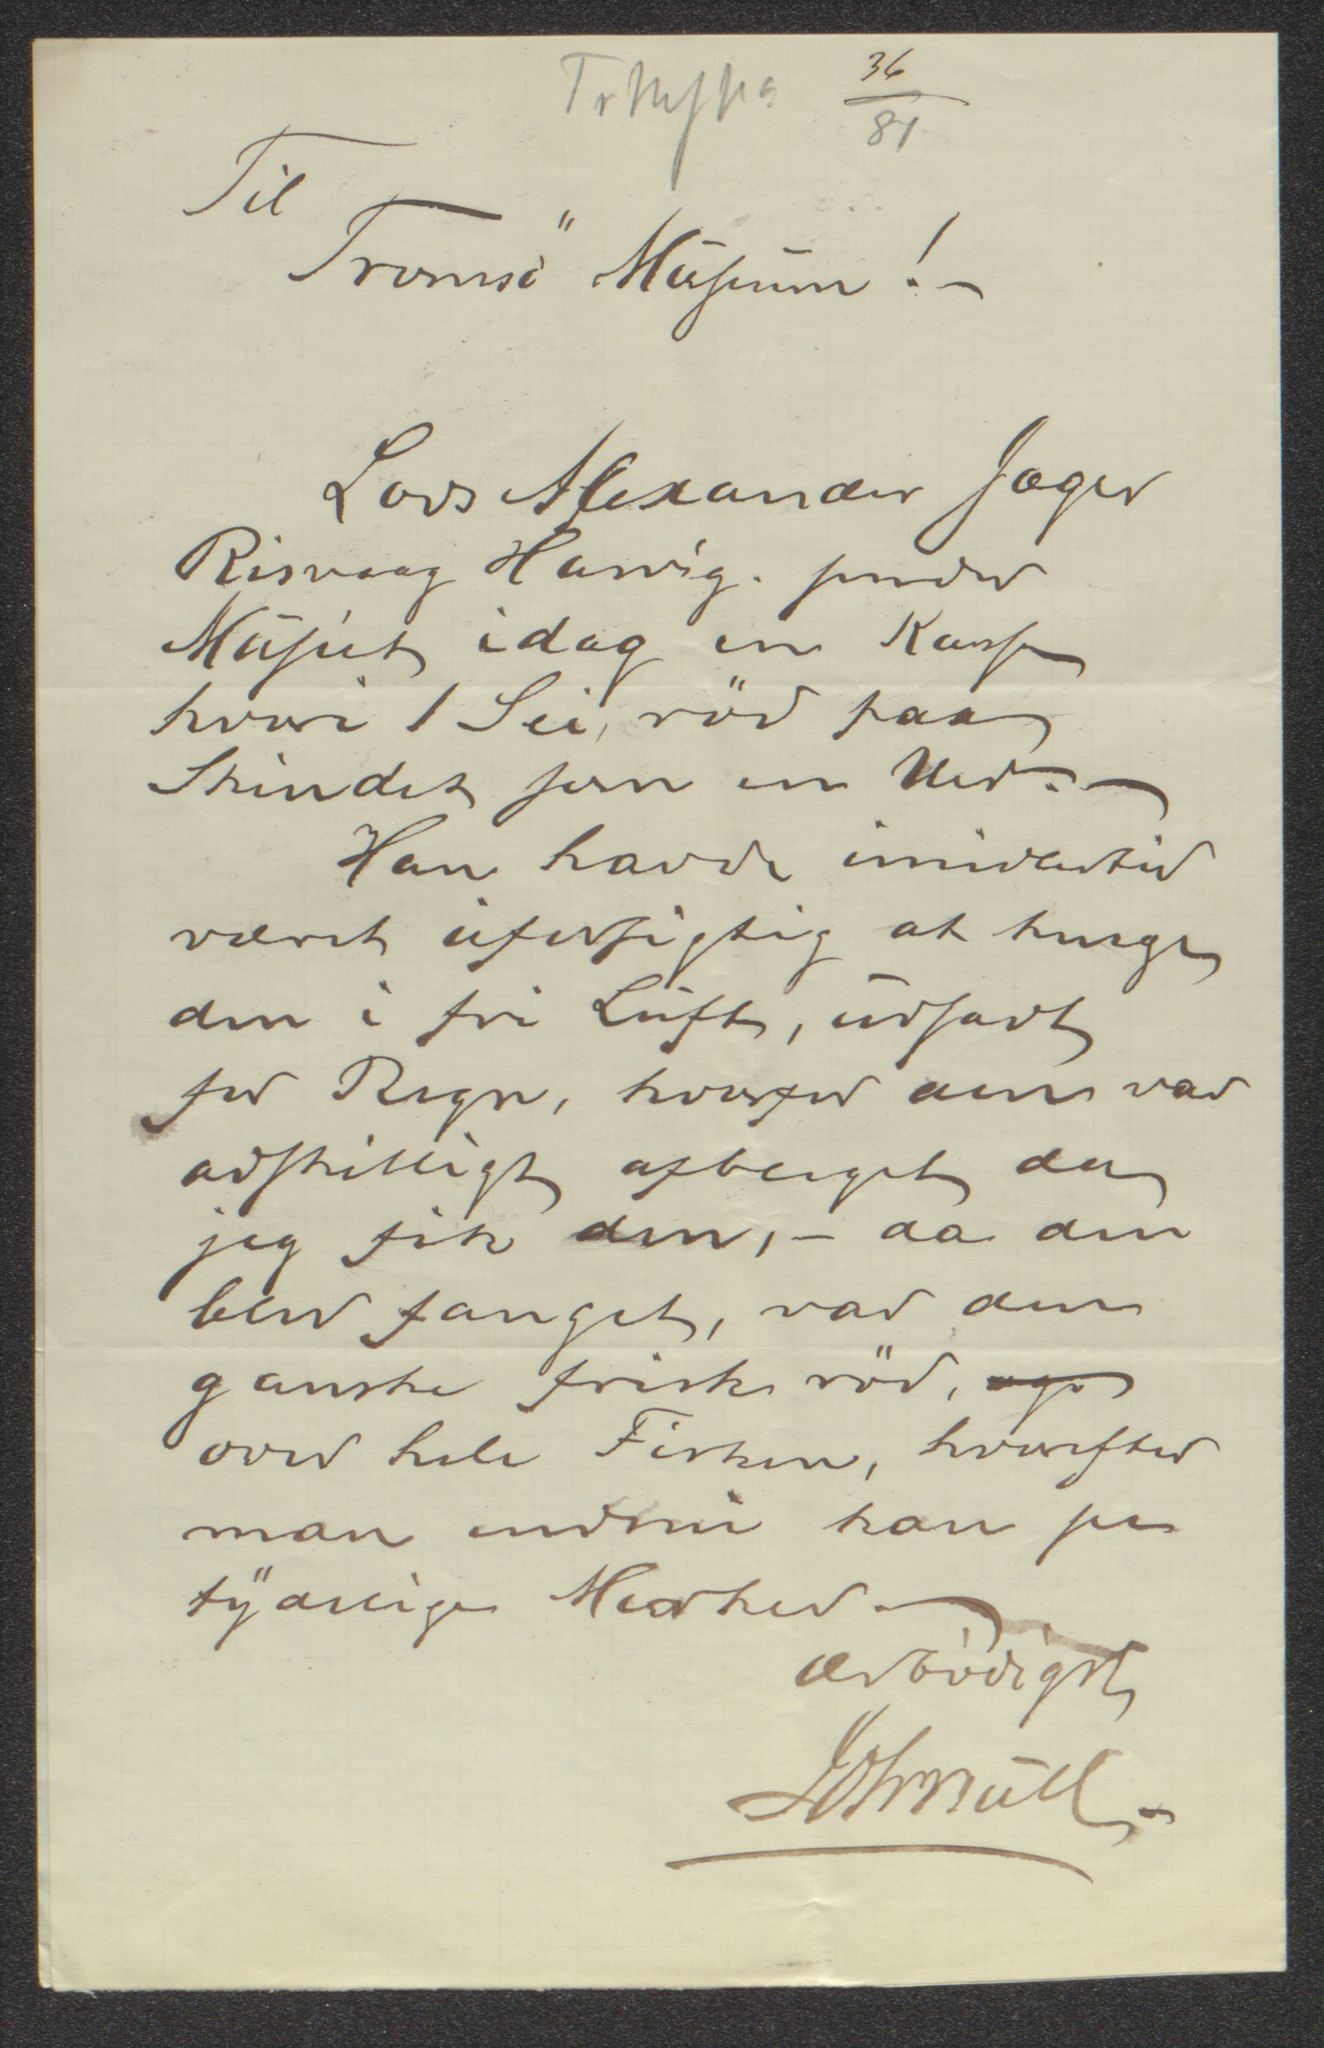 36
81
Til
Tromsö Museum! -
Lods Alexander Jæger
Risvaag Havvig. sender
Museet idag en Kasse
hvori 1 Sei, röd paa
Skindet som en Uer. -
Han havde imidlertid
været uforsigtig at hænge
den i fri Luft, udsadt
for Regn, hvorfor den var
adskilligt afbleget da
jeg fik den, - da den
blev fanget, var den
ganske frisk röd,
over hele Fisken, hvorefter
man endnu kan se
tydelige Mærker -
Ærbödigst